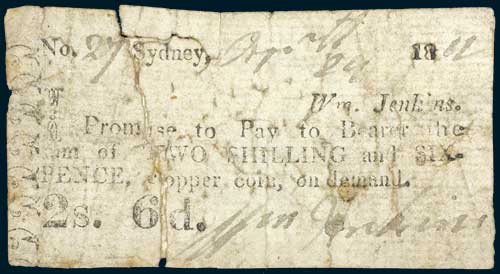 No. 27 Sydney, 18
Wm. Jenkins.
I Promise to Pay to Bearer the
Sum of TWO SHILLING and SIX-
PENCE, Copper coin, on demand.
2s. 6d. Wm Jenkins